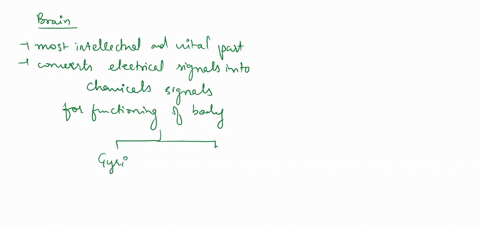 Brain
→ most intellectual and vital part
→ converts electrical signals into
chemicals signals
for functioning of body
Gyri